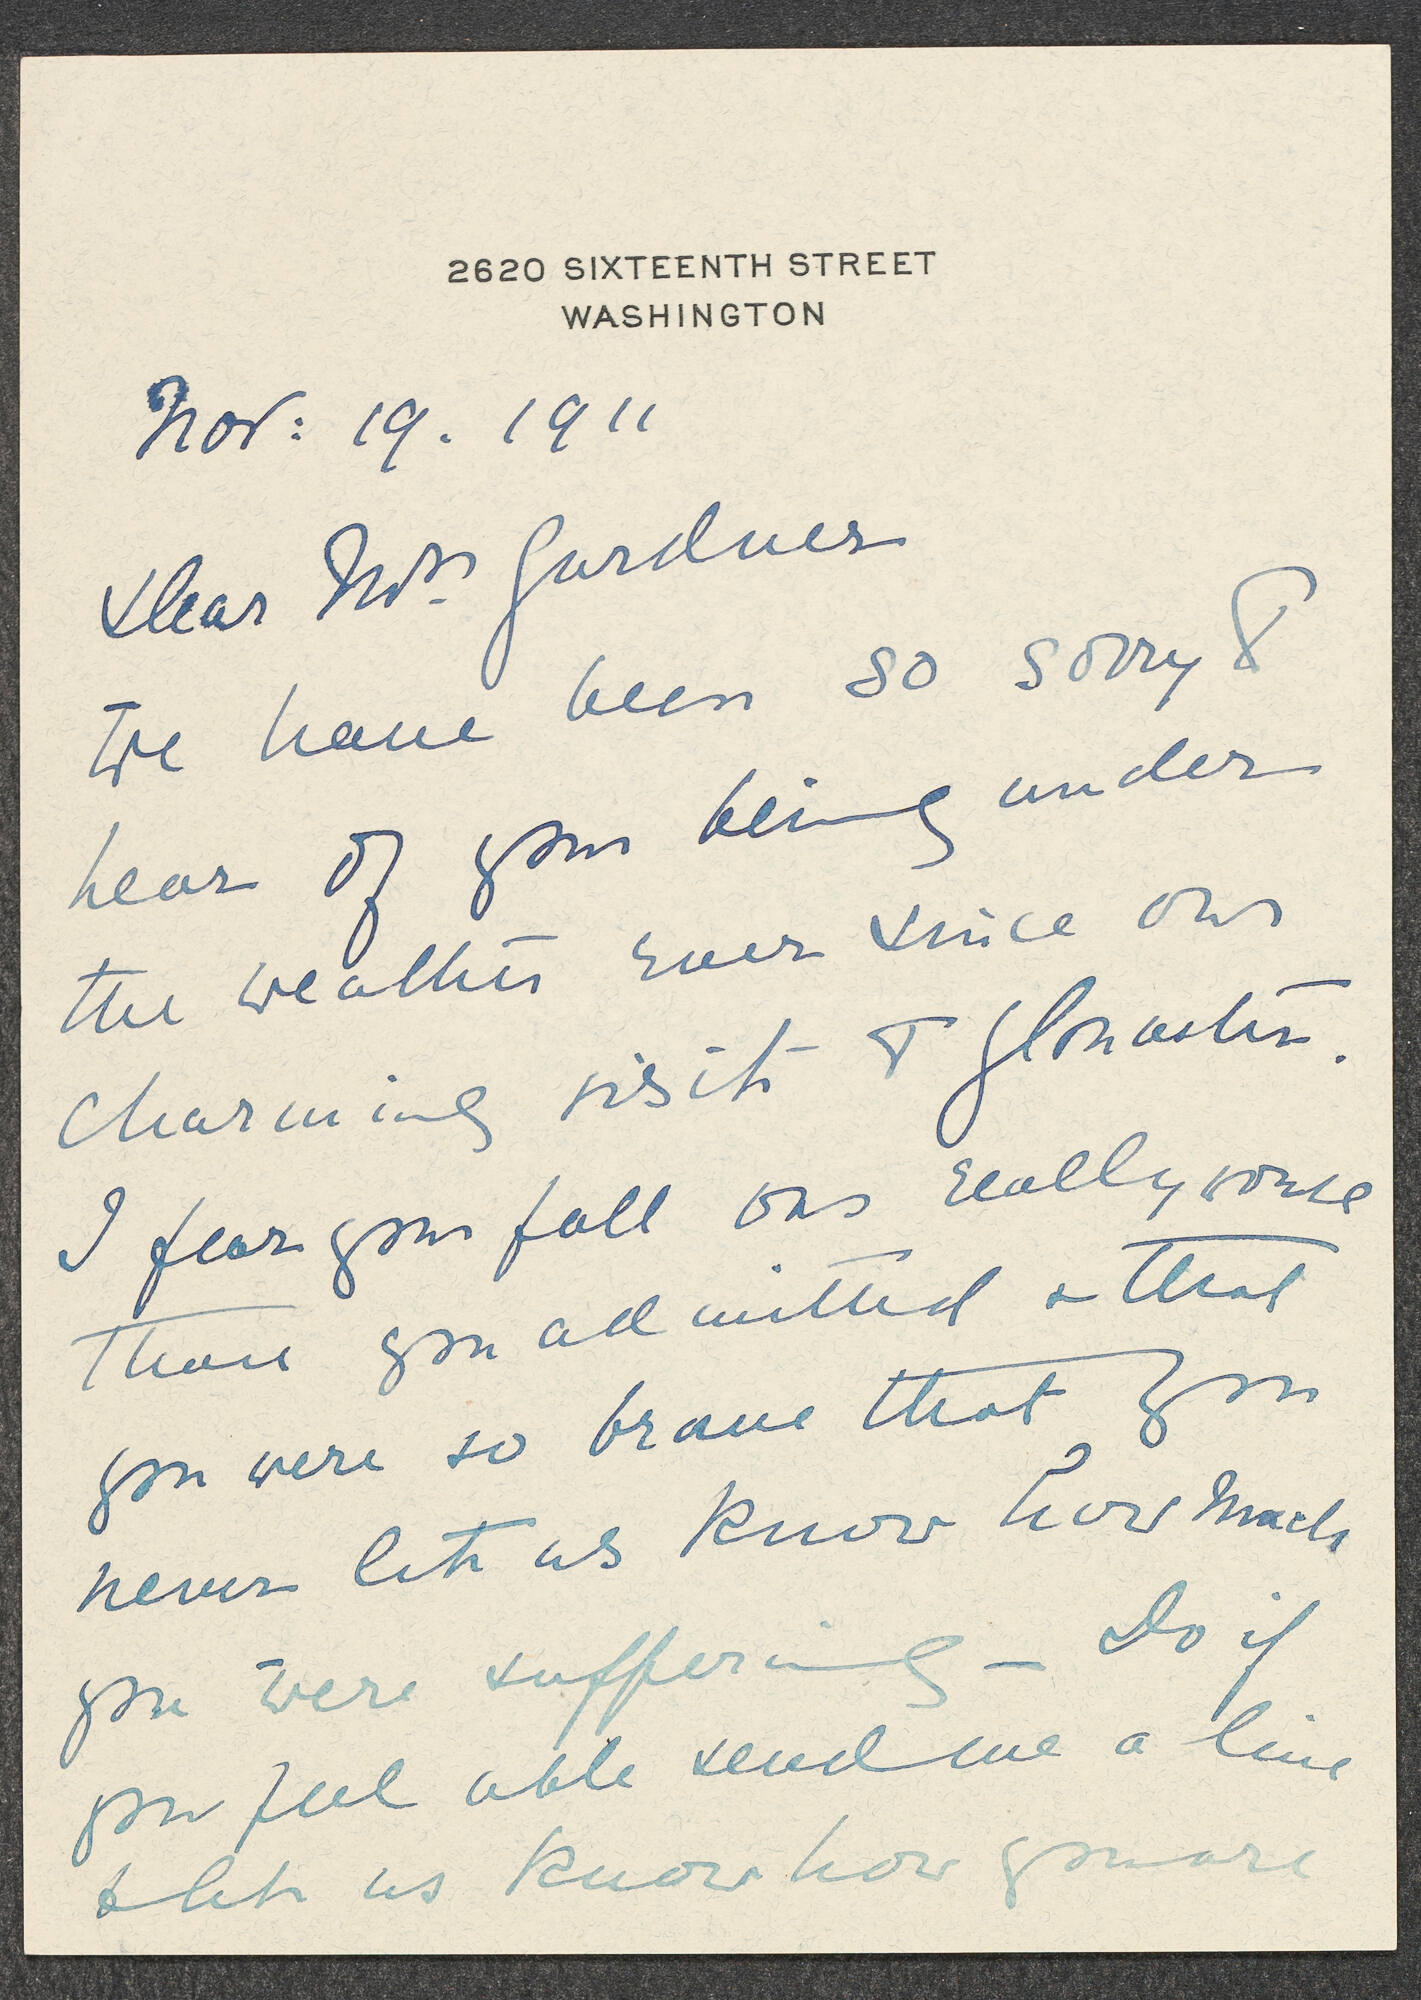 2620 SIXTEENTH STREET
WASHINGTON
Nov: 19. 1911
Dear Mrs. Gardner
We have been so sorry to
hear of your being under
the weather ever since our
charming visit to Gloucester.
I fear your fall was really worse
than you admitted & that
you were so brave that you
never let us know how much
you were suffering — Do if
you feel able send me a line
& let us know how you are